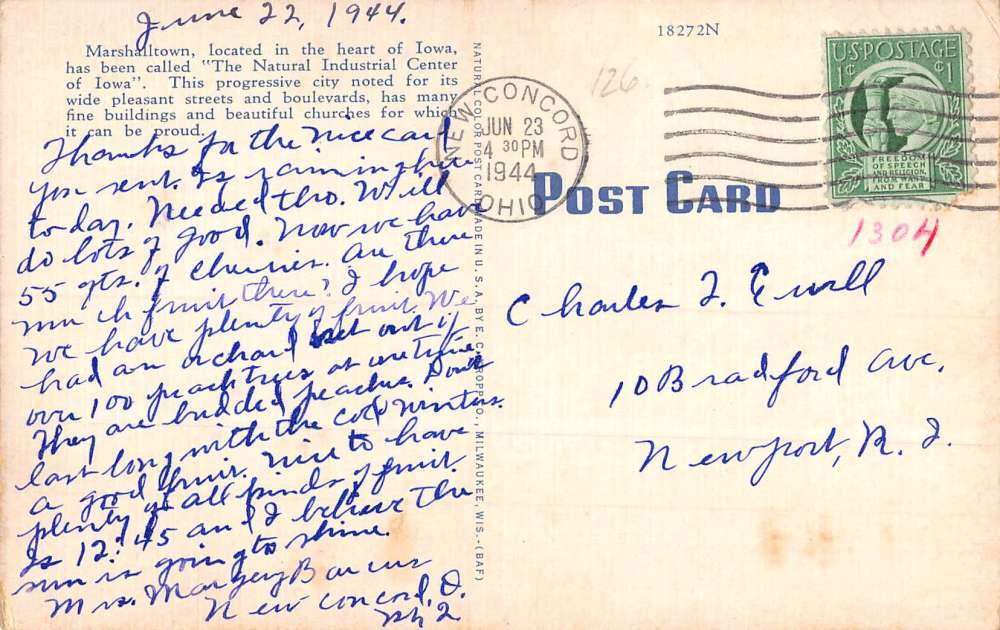 June 22, 1944.
Marshalltown, located in the heart of Iowa,
has been called "The Natural Industrial Center
of Iowa". This progressive city noted for its
wide pleasant streets and boulevards, has many
fine buildings and beautiful churches for which
it can be proud.
Thanks for the nice card
you sent. Is raining here
today. Needed tho. Will
do lots of good. Now we have
55 qts. of cherries. Are there
much fruit there? I hope
we have plenty of fruit. We
had an orchard set out of
over 100 peach trees at one time.
They are budded peaches. Don't
last long with the cold winters.
a good fruit. Nice to have
plenty of all kinds of fruit.
Is 12:45 and I believe the
sun is going to shine.
Mrs. Margery Barcus
New Concord, O.
NATURAL COLOR POST CARD MADE IN U.S.A. BY E. C. KROPP CO., MILWAUKEE, WIS.-(BAF)
18272N
126
NEW CONCORD
JUN 23
4 30 PM
1944
OHIO
U.S. POSTAGE
1¢ 1¢
FREEDOM
OF SPEECH
AND RELIGION,
FROM WANT
AND FEAR
POST CARD
1304
Charles F. Ewell
10 Bradford Ave,
Newport, R. I.